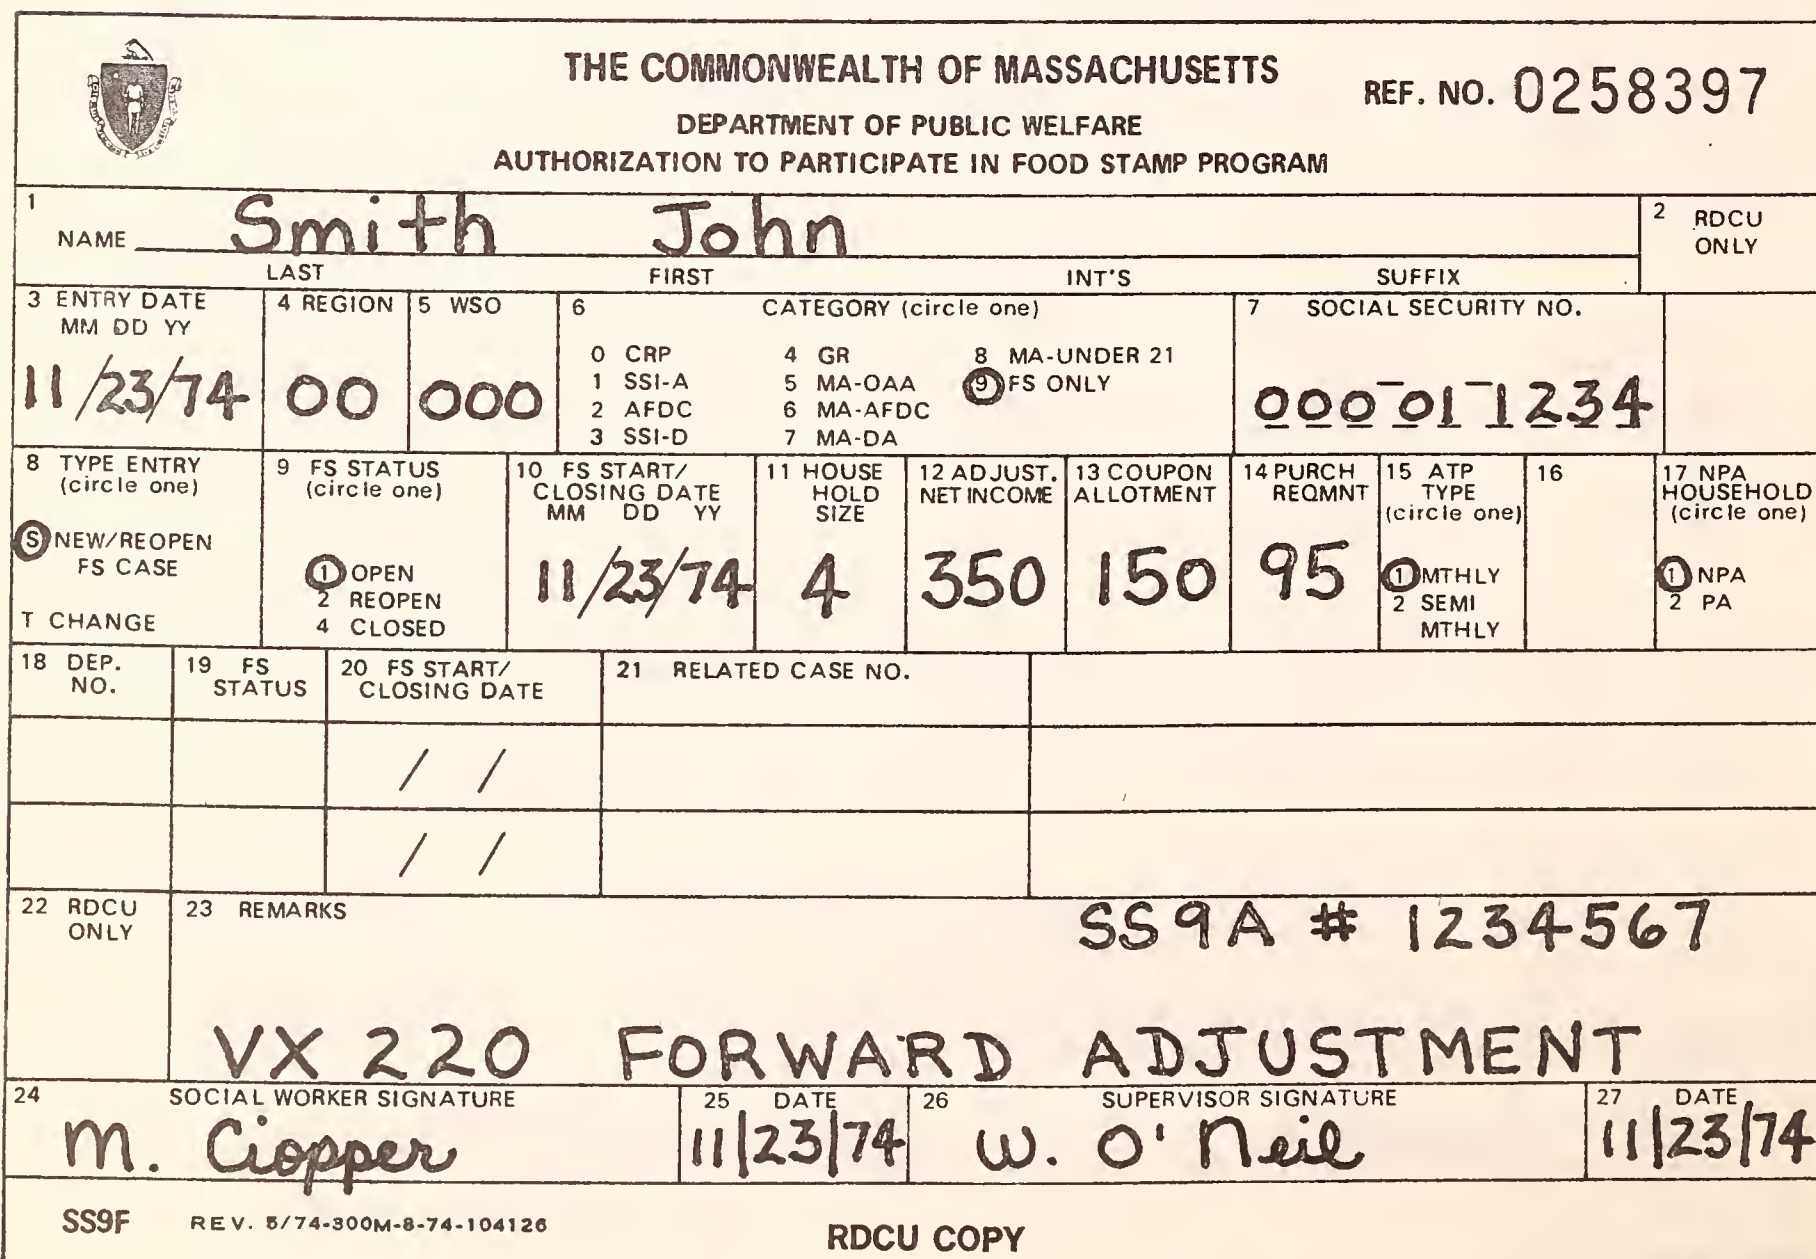 THE COMMONWEALTH OF MASSACHUSETTS
REF. NO. 0258397
DEPARTMENT OF PUBLIC WELFARE
AUTHORIZATION TO PARTICIPATE IN FOOD STAMP PROGRAM
1 NAME Smith John
LAST FIRST INT'S SUFFIX
2 RDCU
ONLY
3 ENTRY DATE
MM DD YY
11/23/74
4 REGION
00
5 WSO
000
6 CATEGORY (circle one)
0 CRP 4 GR 8 MA-UNDER 21
1 SSI-A 5 MA-OAA 9 FS ONLY
2 AFDC 6 MA-AFDC
3 SSI-D 7 MA-DA
7 SOCIAL SECURITY NO.
000-01-1234
8 TYPE ENTRY
(circle one)
S NEW/REOPEN
FS CASE
T CHANGE
9 FS STATUS
(circle one)
1 OPEN
2 REOPEN
4 CLOSED
10 FS START/
CLOSING DATE
MM DD YY
11/23/74
11 HOUSE
HOLD
SIZE
4
12 ADJUST.
NET INCOME
350
13 COUPON
ALLOTMENT
150
14 PURCH
REQMNT
95
15 ATP
TYPE
(circle one)
1 MTHLY
2 SEMI
MTHLY
16
17 NPA
HOUSEHOLD
(circle one)
1 NPA
2 PA
18 DEP.
NO.
19 FS
STATUS
20 FS START/
CLOSING DATE
/ /
/ /
21 RELATED CASE NO.
22 RDCU
ONLY
23 REMARKS
SS9A # 1234567
VX 220 FORWARD ADJUSTMENT
24 SOCIAL WORKER SIGNATURE
M. Ciopper
25 DATE
11/23/74
26 SUPERVISOR SIGNATURE
W. O'Neil
27 DATE
11/23/74
SS9F REV. 5/74-300M-8-74-104126
RDCU COPY